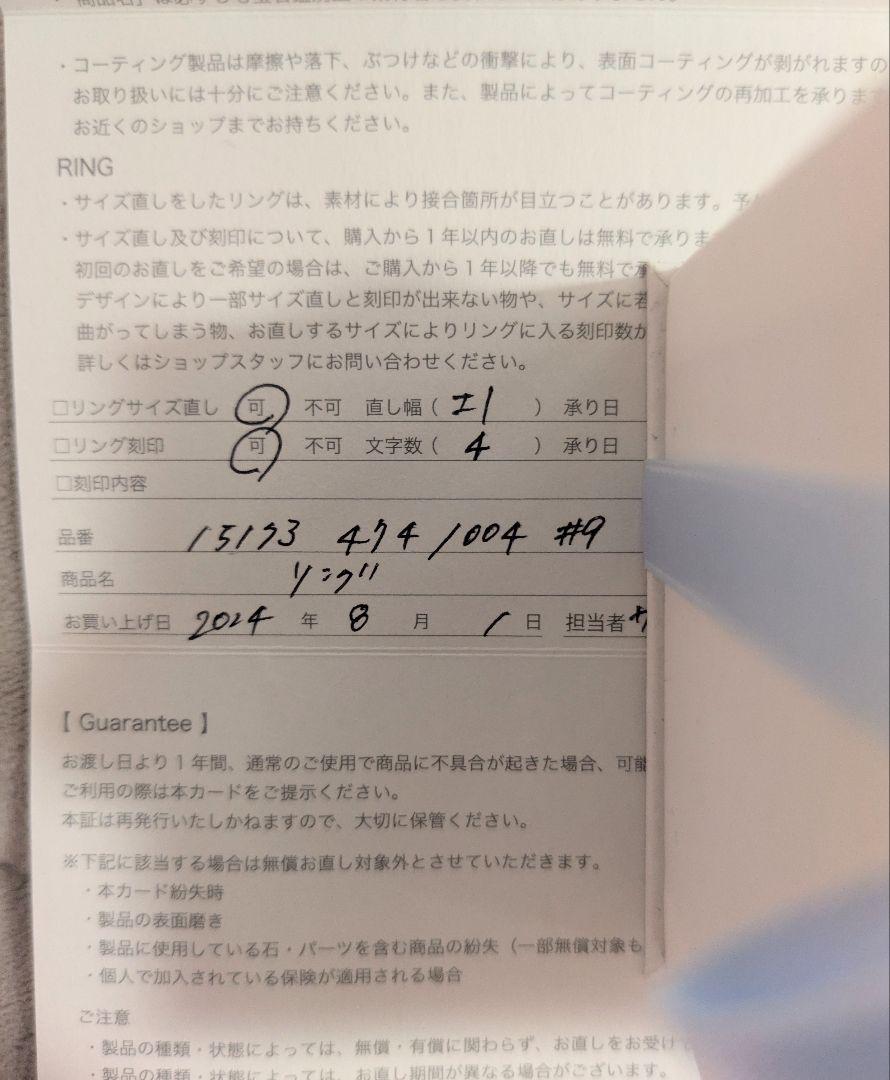 ・コーティング製品は摩擦や落下、ぶつけなどの衝撃により、表面コーティングが剥がれますの
お取り扱いには十分にご注意ください。また、製品によってコーティングの再加工を承りま
お近くのショップまでお持ちください。
RING
・サイズ直しをしたリングは、素材により接合箇所が目立つことがあります。予
・サイズ直し及び刻印について、購入から1年以内のお直しは無料で承りま
初回のお直しをご希望の場合は、ご購入から1年以降でも無料で承
デザインにより一部サイズ直しと刻印が出来ない物や、サイズに若
曲がってしまう物、お直しするサイズによりリングに入る刻印数が
詳しくはショップスタッフにお問い合わせください。
□リングサイズ直し 可 不可 直し幅( ±1 ) 承り日
□リング刻印 可 不可 文字数( 4 ) 承り日
□刻印内容
品番 15173 474 1004 #9
商品名 リング
お買い上げ日 2024 年 8 月 1 日 担当者
【 Guarantee 】
お渡し日より1年間、通常のご使用で商品に不具合が起きた場合、可能
ご利用の際は本カードをご提示ください。
本証は再発行いたしかねますので、大切に保管ください。
※下記に該当する場合は無償お直し対象外とさせていただきます。
・本カード紛失時
・製品の表面磨き
・製品に使用している石・パーツを含む商品の紛失（一部無償対象も
・個人で加入されている保険が適用される場合
ご注意
・製品の種類・状態によっては、無償・有償に関わらず、お直しをお受け
・製品の種類・状態によっては、お直し期間が異なる場合がございます。